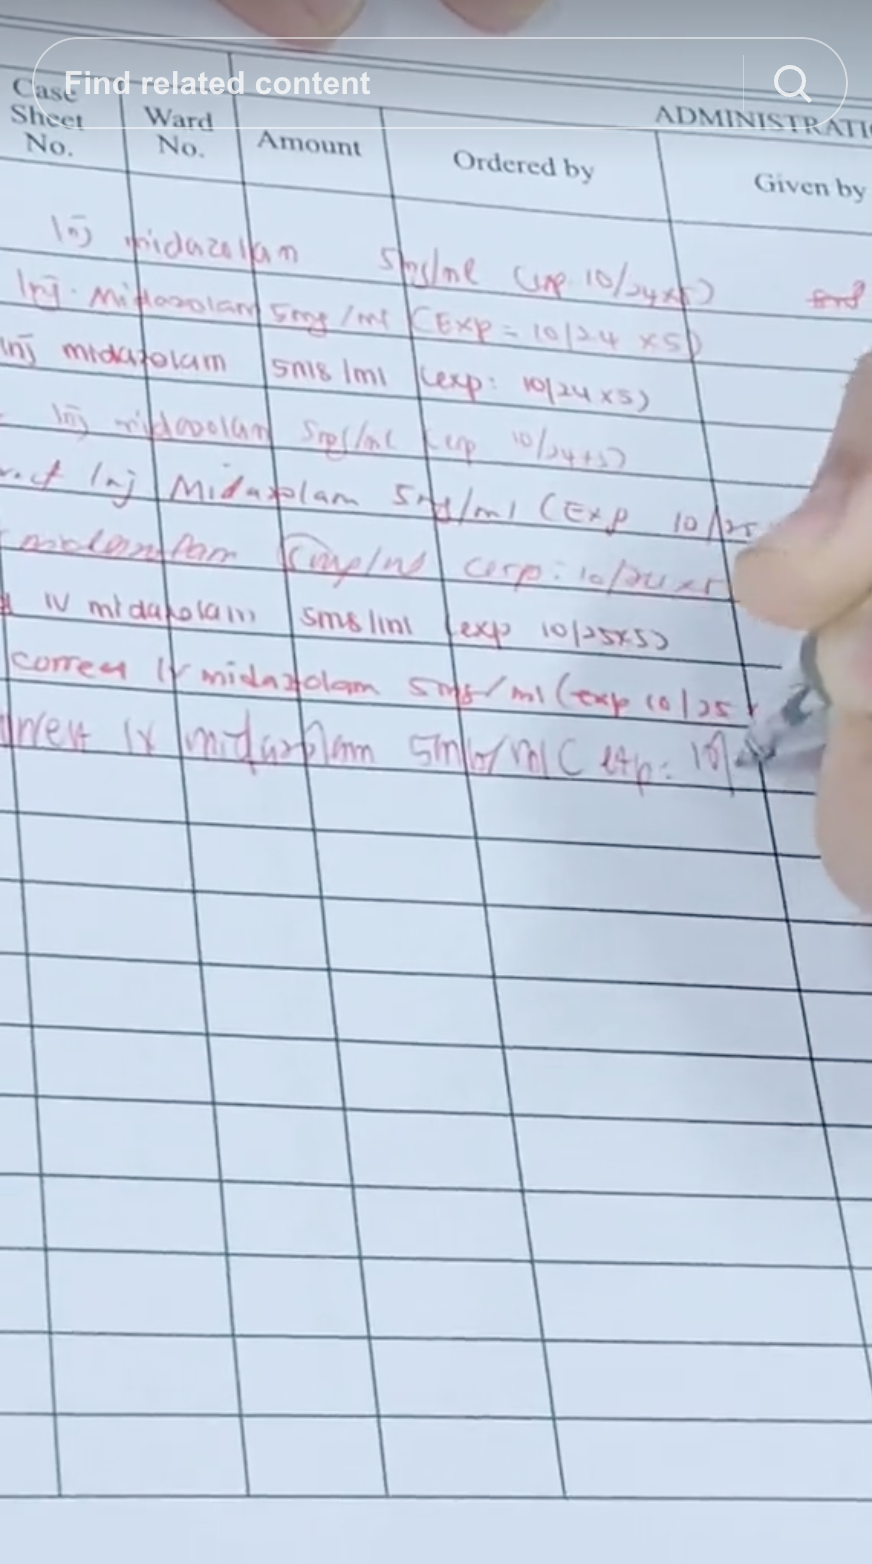 Find related content
ADMINISTRATI
Case Sheet No.
Ward No.
Amount
Ordered by
Given by
Inj midazolam 5mg/ml (exp 10/24x5)
Inj. Midazolam 5mg/ml (Exp = 10/24 x5)
Inj midazolam 5mg/ml (exp: 10/24x5)
Inj midazolam 5mg/ml (exp 10/24x5)
Inj Midazolam 5mg/ml (Exp 10/25
midazolam 5mg/ml (exp: 10/24x5
IV midazolam 5mg/ml (exp 10/25x5)
correct IV midazolam 5mg/ml (exp 10/25
IV midazolam 5mg/ml (exp: 10/